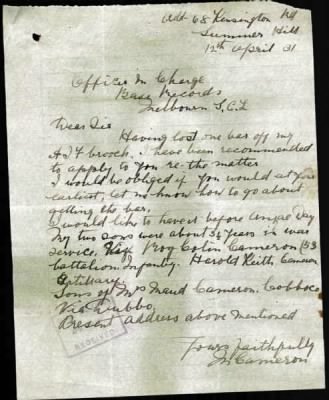 Add 68 Kensington Rd
Summer Hill
12th April 31
Officer In Charge
Base Records
Melbourn S.C.1
Dear Sir
Having lost one bar off my
A I F brooch. I have been recommended
to apply to you re-the matter
I would be obliged if you would at your
earliest, let me know how to go about
getting the bar,
I would like to have it before Anzac Day
My two sons were about 3½ years in war
service, Colin Cameron 33
battalion Infantry. Harold Keith Cameron
Artillary,
Sons of Mrs Maud Cameron, Cobbora
Via Dubbo,
Present address above mentioned
RECEIVED
Yours Faithfully
M Cameron